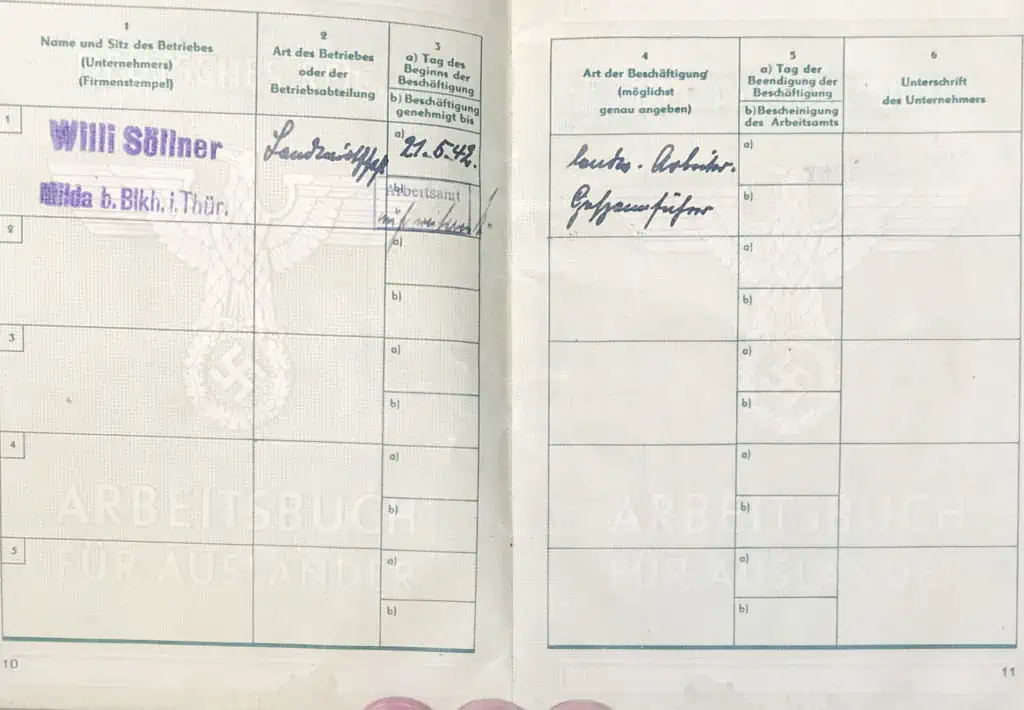 1
Name und Sitz des Betriebes
(Unternehmers)
(Firmenstempel)
2
Art des Betriebes
oder der
Betriebsabteilung
3
a) Tag des
Beginns der
Beschäftigung
b) Beschäftigung
genehmigt bis
1
Willi Söllner
Milda b. Blkh. i. Thür.
Landwirtschaft
a) 21.5.42.
b)
Arbeitsamt
2
a)
b)
3
a)
b)
4
a)
b)
5
a)
b)
DEUTSCHES REICH
ARBEITSBUCH
FÜR AUSLÄNDER
10
4
Art der Beschäftigung
(möglichst
genau angeben)
5
a) Tag der
Beendigung der
Beschäftigung
b) Bescheinigung
des Arbeitsamts
6
Unterschrift
des Unternehmers
landw. Arbeiter.
Gespannführer
a)
b)
a)
b)
a)
b)
a)
b)
a)
b)
ARBEITSBUCH
FÜR AUSLÄNDER
11